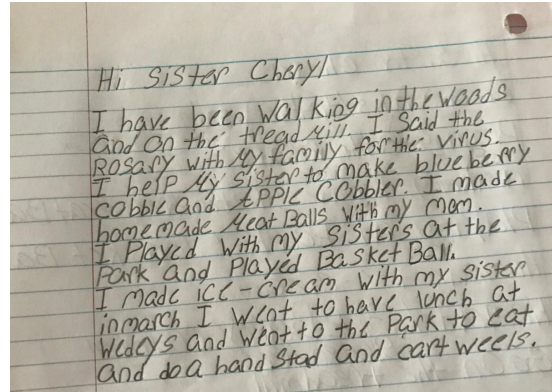 Hi Sister Cheryl
I have been walking in the woods
and on the treadmill. I said the
Rosary with my family for the virus.
I help my sister to make blueberry
cobble and Apple cobbler. I made
homemade Meat Balls with my mom.
I Played with my sisters at the
Park and Played Basket Ball.
I made ice-cream with my sister
in march I went to have lunch at
Wedeys and went to the Park to eat
and do a hand stad and cart weels.